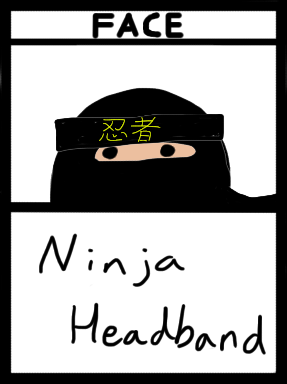 FACE
忍者
Ninja
Headband